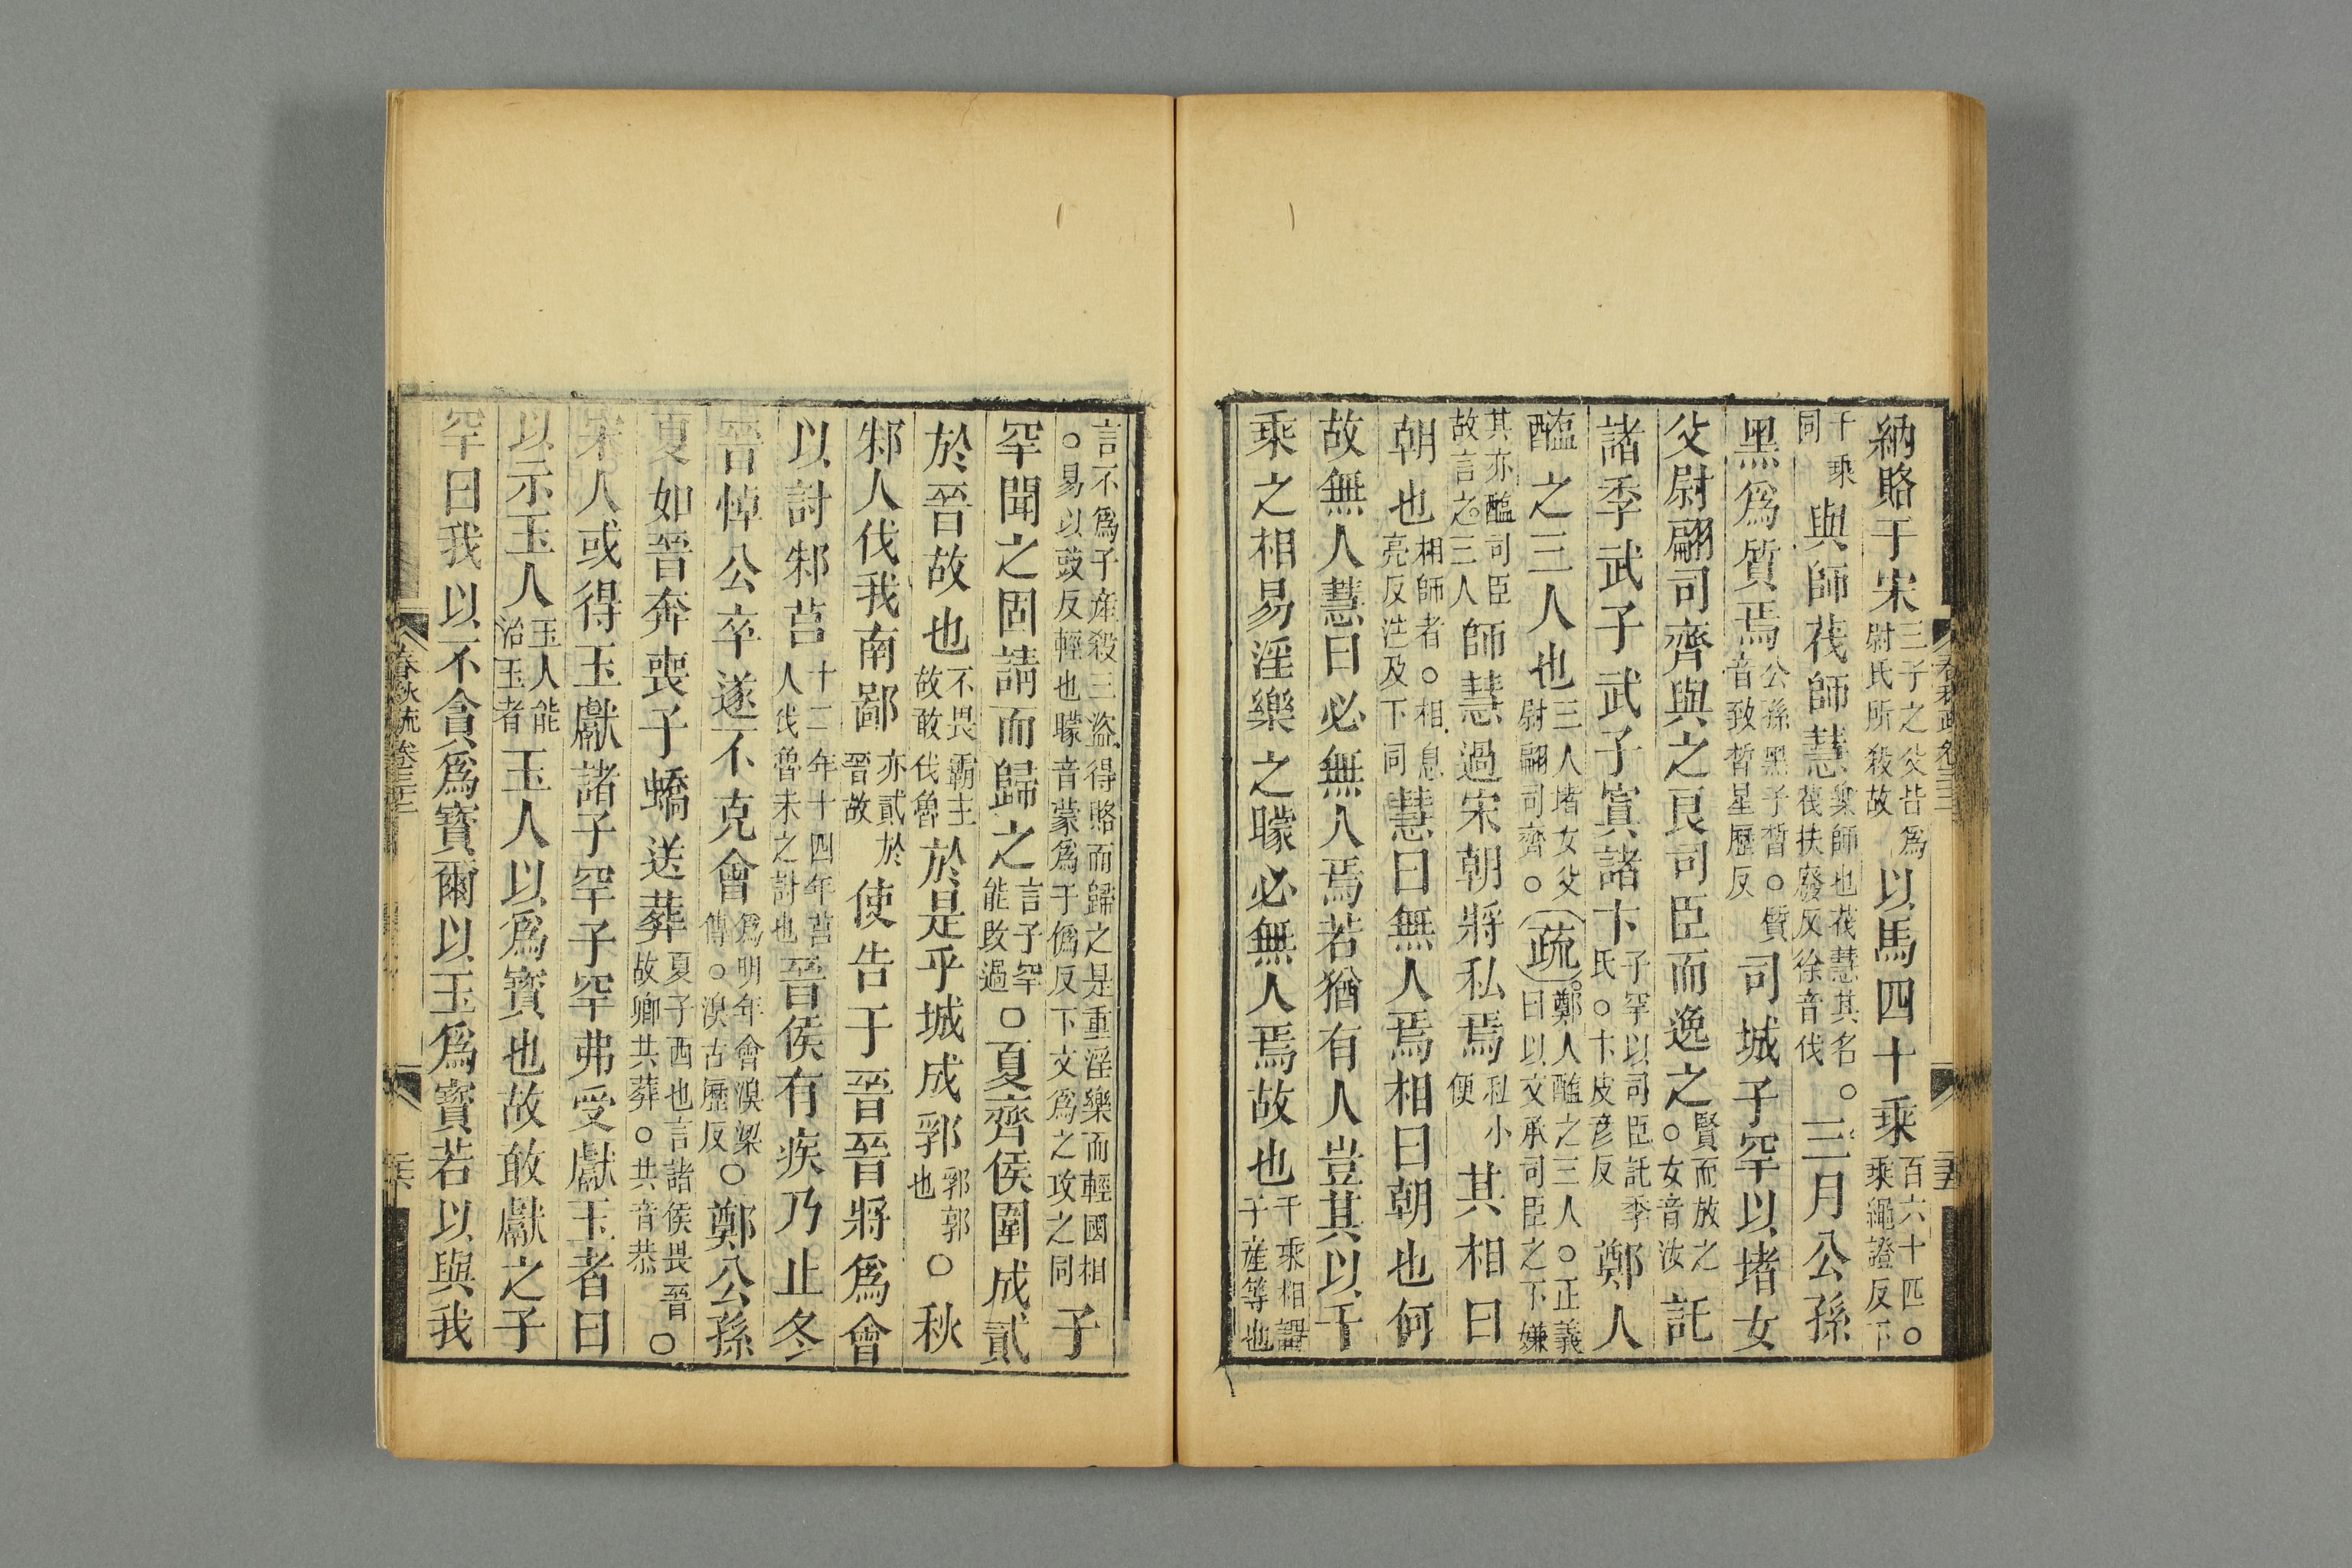 納賂于宋三子之父皆爲尉氏所殺故以馬四十乘百六十匹○乘繩證反下
千乘同與師茷師慧樂師也茷慧其名○茷扶廢反徐音伐三月公孫
黑爲質焉公孫黑子晳○質音致晳星歷反司城子罕以堵女
父尉翩司齊與之良司臣而逸之賢而放之○女音汝託
諸季武子武子寘諸卞子罕以司臣託季氏○卞皮彥反鄭人
醢之三人也三人堵女父尉翩司齊○疏鄭人醢之三人○正義曰以文承司臣之下嫌
其亦醢司臣故言之三人師慧過宋朝將私焉私小便其相曰
朝也相師者○相息亮反注及下同慧曰無人焉相曰朝也何
故無人慧曰必無人焉若猶有人豈其以千
乘之相易淫樂之矇必無人焉故也千乘相謂子産等也
春秋疏卷三十三
五
言不爲子産殺三盜得賂而歸之是重淫樂而輕國相○易以豉反輕也矇音蒙爲于僞反下文爲之攻之同子
罕聞之固請而歸之言子罕能改過○夏齊侯圍成貳
於晉故也不畏霸主故敢伐魯於是乎城成郛郛郭也○秋
邾人伐我南鄙亦貳於晉故使告于晉晉將爲會
以討邾莒十二年十四年莒人伐魯未之討也晉侯有疾乃止冬
晉悼公卒遂不克會爲明年會湨梁傳○湨古歷反○鄭公孫
夏如晉奔喪子蟜送葬夏子西也言諸侯畏晉故卿共葬○共音恭○
宋人或得玉獻諸子罕子罕弗受獻玉者曰
以示玉人玉人能治玉者玉人以爲寶也故敢獻之子
罕曰我以不貪爲寶爾以玉爲寶若以與我
春秋疏卷三十三
六